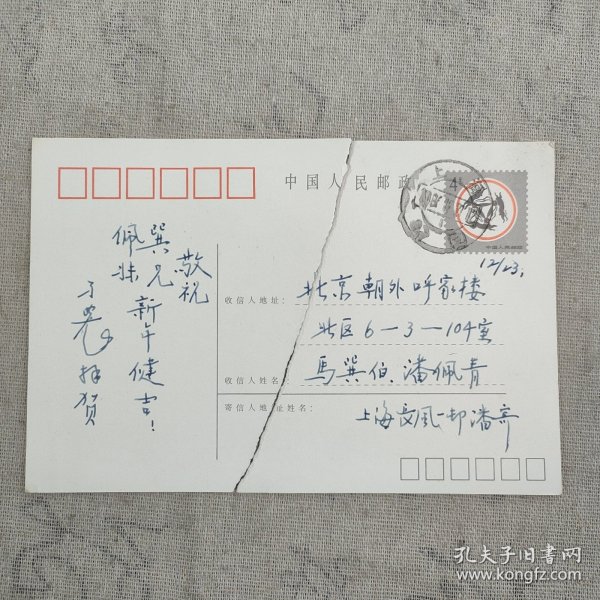 中国人民邮政
4
中国人民邮政
12/23,
敬祝
巽兄
佩妹
新年健吉!
子农拜贺
收信人地址:
北京朝外呼家楼
北区6-3-104室
收信人姓名:
馬巽伯、潘佩青
寄信人地址姓名:
上海 潘寄
孔夫子旧书网
www.kongfz.com